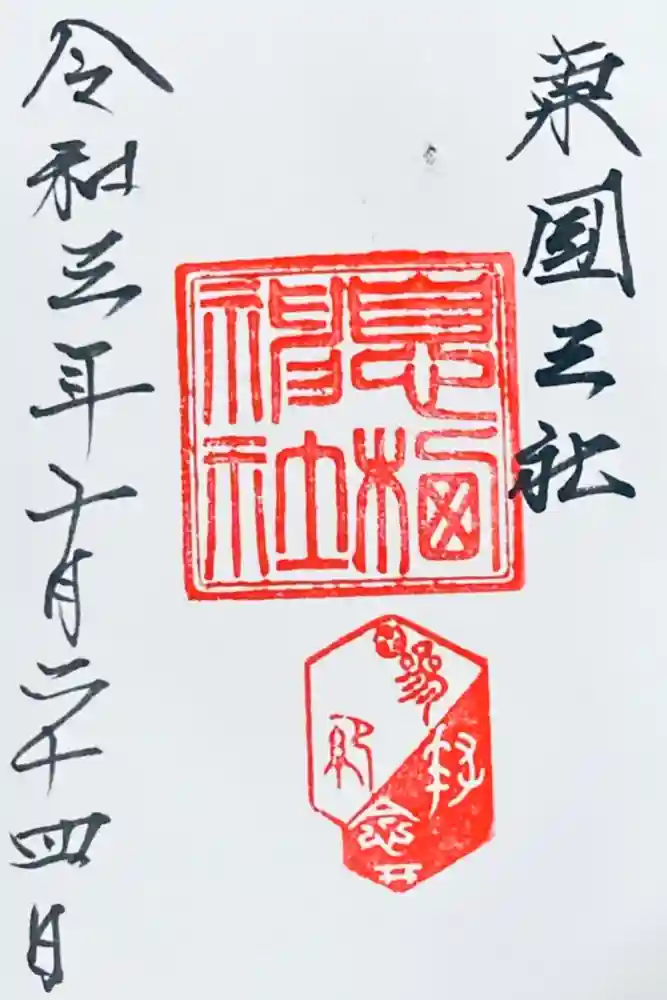 東國三社
息栖神社
令和三年十月二十四日